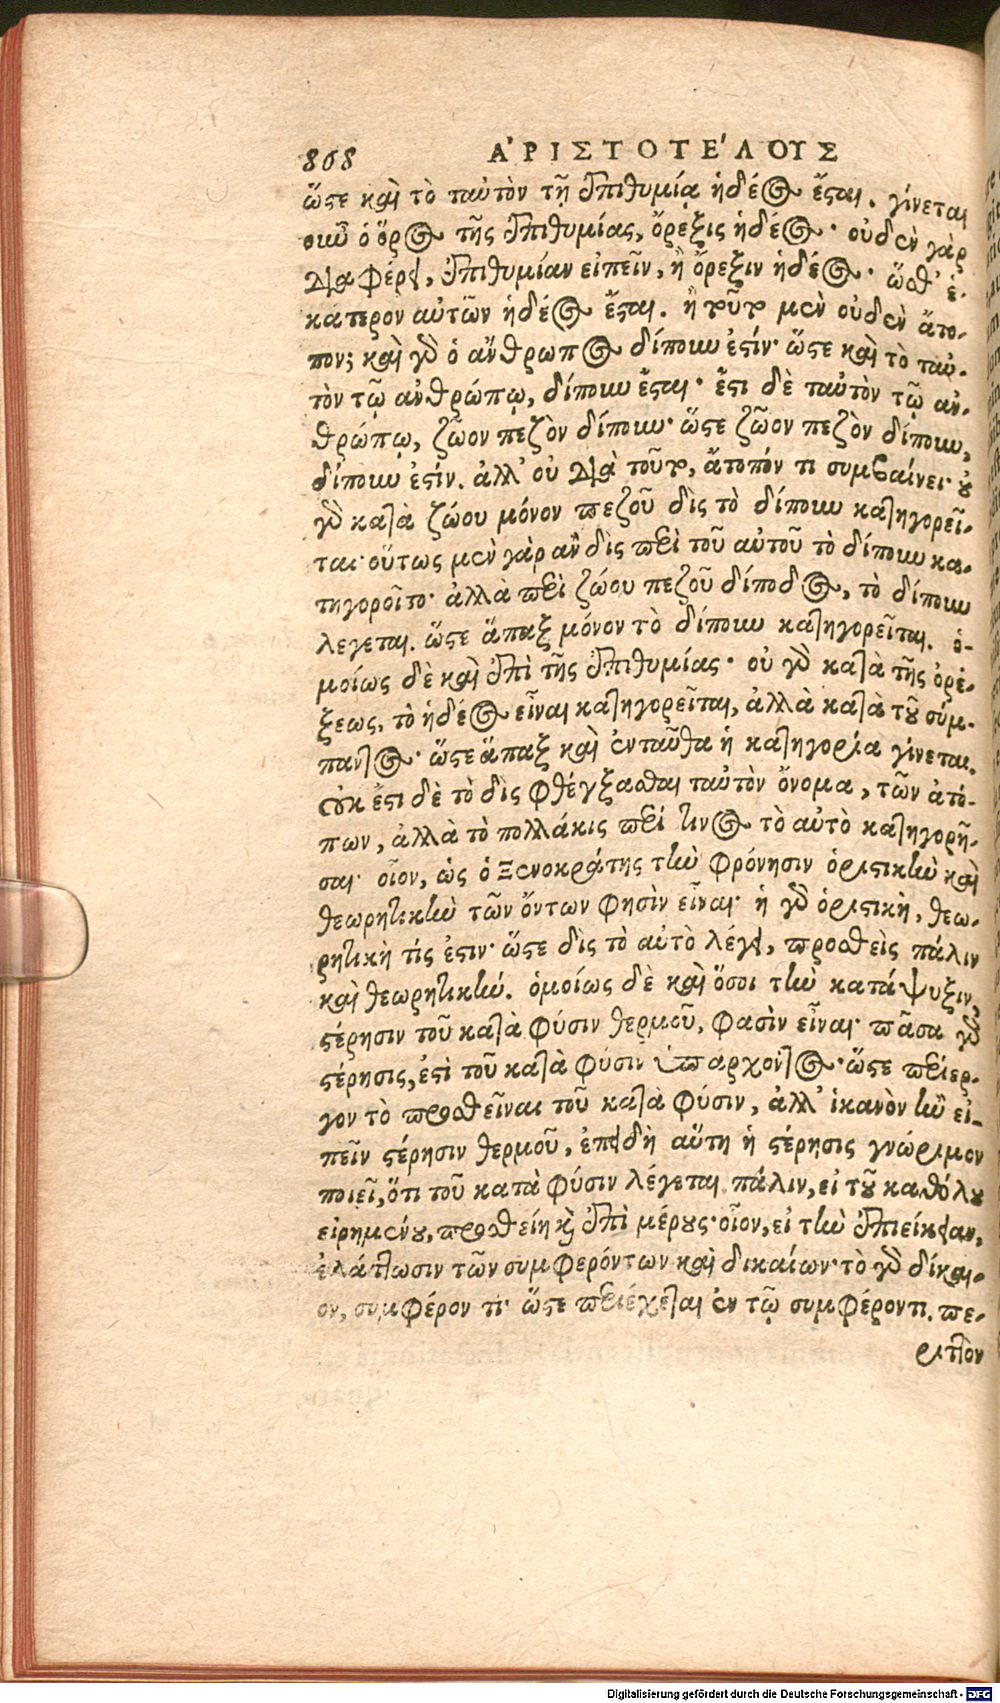 868 ἈΡΙΣΤΟΤΈΛΟΥΣ
ὥστε καὶ τὸ ταὐτὸν τῇ ἐπιθυμίᾳ ἡδέος ἔσται. γίνεται
οὖν ὁ ὅρος τῆς ἐπιθυμίας, ὄρεξις ἡδέος· οὐδὲν γὰρ
διαφέρει, ἐπιθυμίαν εἰπεῖν, ἢ ὄρεξιν ἡδέος· ὥσθ' ἑ-
κάτερον αὐτῶν ἡδέος ἔσται. ἢ τοῦτο μὲν οὐδὲν ἄτο-
πον; καὶ γὰρ ὁ ἄνθρωπος δίπουν ἐστίν· ὥστε καὶ τὸ ταυ-
τὸν τῷ ἀνθρώπῳ, δίπουν ἔσται· ἔστι δὲ ταὐτὸν τῷ ἀν-
θρώπῳ, ζῶον πεζὸν δίπουν· ὥστε ζῶον πεζὸν δίπουν,
δίπουν ἐστίν. ἀλλ' οὐ διὰ τοῦτο, ἄτοπόν τι συμβαίνει· οὐ
γὰρ κατὰ ζώου μόνον πεζοῦ δὶς τὸ δίπουν κατηγορεῖ-
ται· οὕτως μὲν γὰρ ἂν δὶς περὶ τοῦ αὐτοῦ τὸ δίπουν κα-
τηγοροῖτο· ἀλλὰ περὶ ζώου πεζοῦ δίποδος, τὸ δίπουν
λέγεται. ὥστε ἅπαξ μόνον τὸ δίπουν κατηγορεῖται. ὁ-
μοίως δὲ καὶ ἐπὶ τῆς ἐπιθυμίας· οὐ γὰρ κατὰ τῆς ὀρέ-
ξεως, τὸ ἡδέος εἶναι κατηγορεῖται, ἀλλὰ κατὰ τοῦ σύμ-
παντος· ὥστε ἅπαξ καὶ ἐνταῦθα ἡ κατηγορία γίνεται.
οὐκ ἔστι δὲ τὸ δὶς φθέγξασθαι ταὐτὸν ὄνομα, τῶν ἀτό-
πων, ἀλλὰ τὸ πολλάκις περί τινος τὸ αὐτὸ κατηγορῆ-
σαι· οἷον, ὡς ὁ Ξενοκράτης τὴν φρόνησιν ὁριστικὴν καὶ
θεωρητικὴν τῶν ὄντων φησὶν εἶναι· ἡ γὰρ ὁριστικὴ, θεω-
ρητική τίς ἐστιν· ὥστε δὶς τὸ αὐτὸ λέγει, προσθεὶς πάλιν
καὶ θεωρητικήν. ὁμοίως δὲ καὶ ὅσοι τὴν κατάψυξιν,
στέρησιν τοῦ κατὰ φύσιν θερμοῦ, φασὶν εἶναι· πᾶσα γὰρ
στέρησις, ἐστὶ τοῦ κατὰ φύσιν ὑπάρχοντος· ὥστε περίερ-
γον τὸ προσθεῖναι τοῦ κατὰ φύσιν, ἀλλ' ἱκανὸν ἦν εἰ-
πεῖν στέρησιν θερμοῦ, ἐπειδὴ αὕτη ἡ στέρησις γνώριμον
ποιεῖ, ὅτι τοῦ κατὰ φύσιν λέγεται. πάλιν, εἰ τοῦ καθόλου
εἰρημένου, προσθείη καὶ ἐπὶ μέρους· οἷον, εἰ τὴν ἐπιείκειαν,
ἐλάττωσιν τῶν συμφερόντων καὶ δικαίων· τὸ γὰρ δίκαι-
ον, συμφέρον τι· ὥστε περιέχεται ἐν τῷ συμφέροντι. πε-
ριττὸν
Digitalisierung gefördert durch die Deutsche Forschungsgemeinschaft - DFG